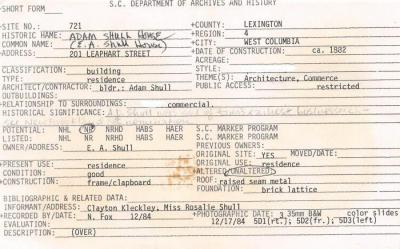 S.C. DEPARTMENT OF ARCHIVES AND HISTORY
+SHORT FORM
+SITE NO: 721 +COUNTY: LEXINGTON
HISTORIC NAME: ADAM SHULL HOUSE +REGION: 4
COMMON NAME: (E.A. Shull House) +CITY: WEST COLUMBIA
+ADDRESS: 201 LEAPHART STREET +DATE OF CONSTRUCTION: ca. 1882
ACREAGE:
STYLE:
CLASSIFICATION: building THEME(S): Architecture, Commerce
TYPE: residence PUBLIC ACCESS: restricted
ARCHITECT/CONTRACTOR: bldr.; Adam Shull
OUTBUILDINGS:
RELATIONSHIP TO SURROUNDINGS: commercial.
HISTORICAL SIGNIFICANCE:
POTENTIAL: NHL NR NRHD HABS HAER S.C. MARKER PROGRAM
LISTED: NHL NR NRHD HABS HAER S.C. MARKER PROGRAM
OWNER/ADDRESS: E. A. Shull PREVIOUS OWNERS:
ORIGINAL SITE: YES MOVED/DATE:
+PRESENT USE: residence ORIGINAL USE: residence
CONDITION: good ALTERED/UNALTERED:
+CONSTRUCTION: frame/clapboard ROOF: raised seam metal
FOUNDATION: brick lattice
BIBLIOGRAPHIC & RELATED DATA:
INFORMANT/ADDRESS: Clayton Kleckley, Miss Rosalie Shull
+RECORDED BY/DATE: N. Fox 12/84 +PHOTOGRAPHIC DATE: 3 35mm B&W color slides
EVALUATION: 12/17/84 5D1(rt.); 5D2(fr.); 5D3(left)
DESCRIPTION: (OVER)